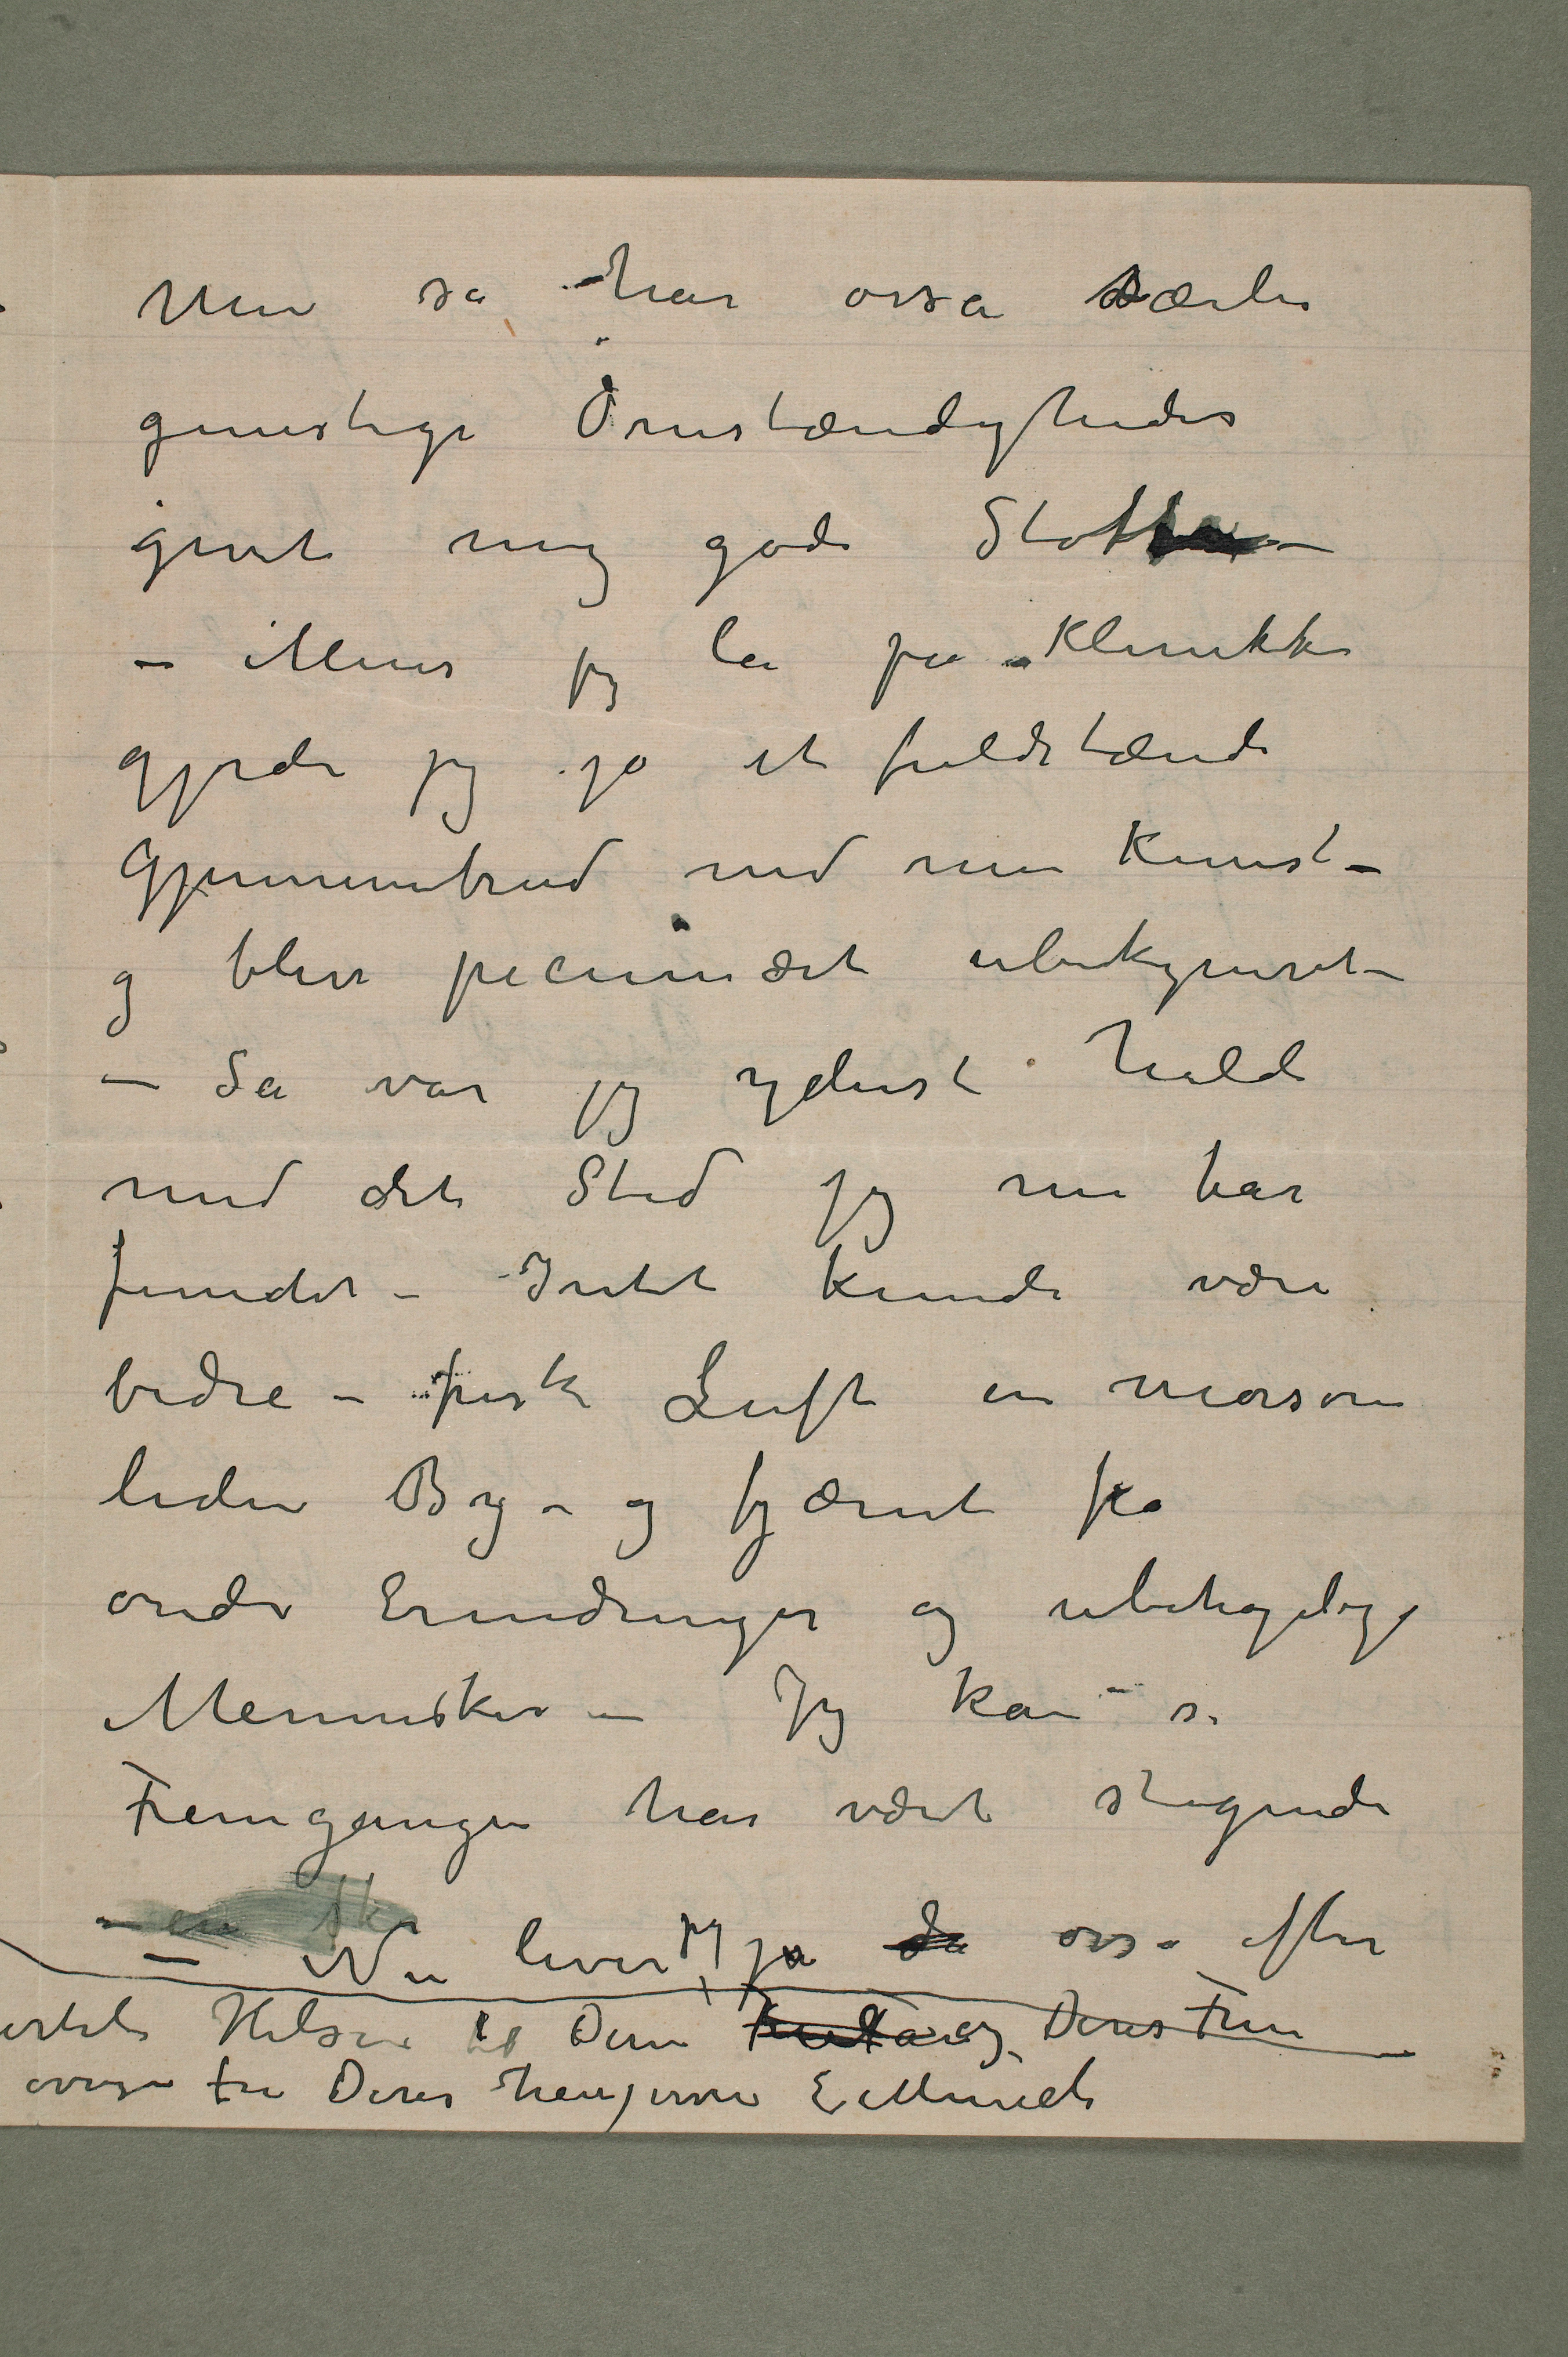 Men så har osså særlig
gunstige Omstændigheder
givet mig gode Støtter –
– Mens jeg lå på Klinikken
gjorde jeg jo et fuldstændi
Gjennembrud med min Kunst –
og blev pecuniært ubekymret –
– Så var jeg yderst heldi
med det Sted jeg nu har
fundet – Intet kunde være
bedre – frisk Luft en morsom
liden By – og fjærnt fra
onde Erindringer og ubehagelige
Mennesker – Jeg kan si
Fremgangen har været stigende
– en
– Nu lever jeg jo da osså efter
Hilsen til Dem og Deres Frue
fra Deres hengivne E Munch